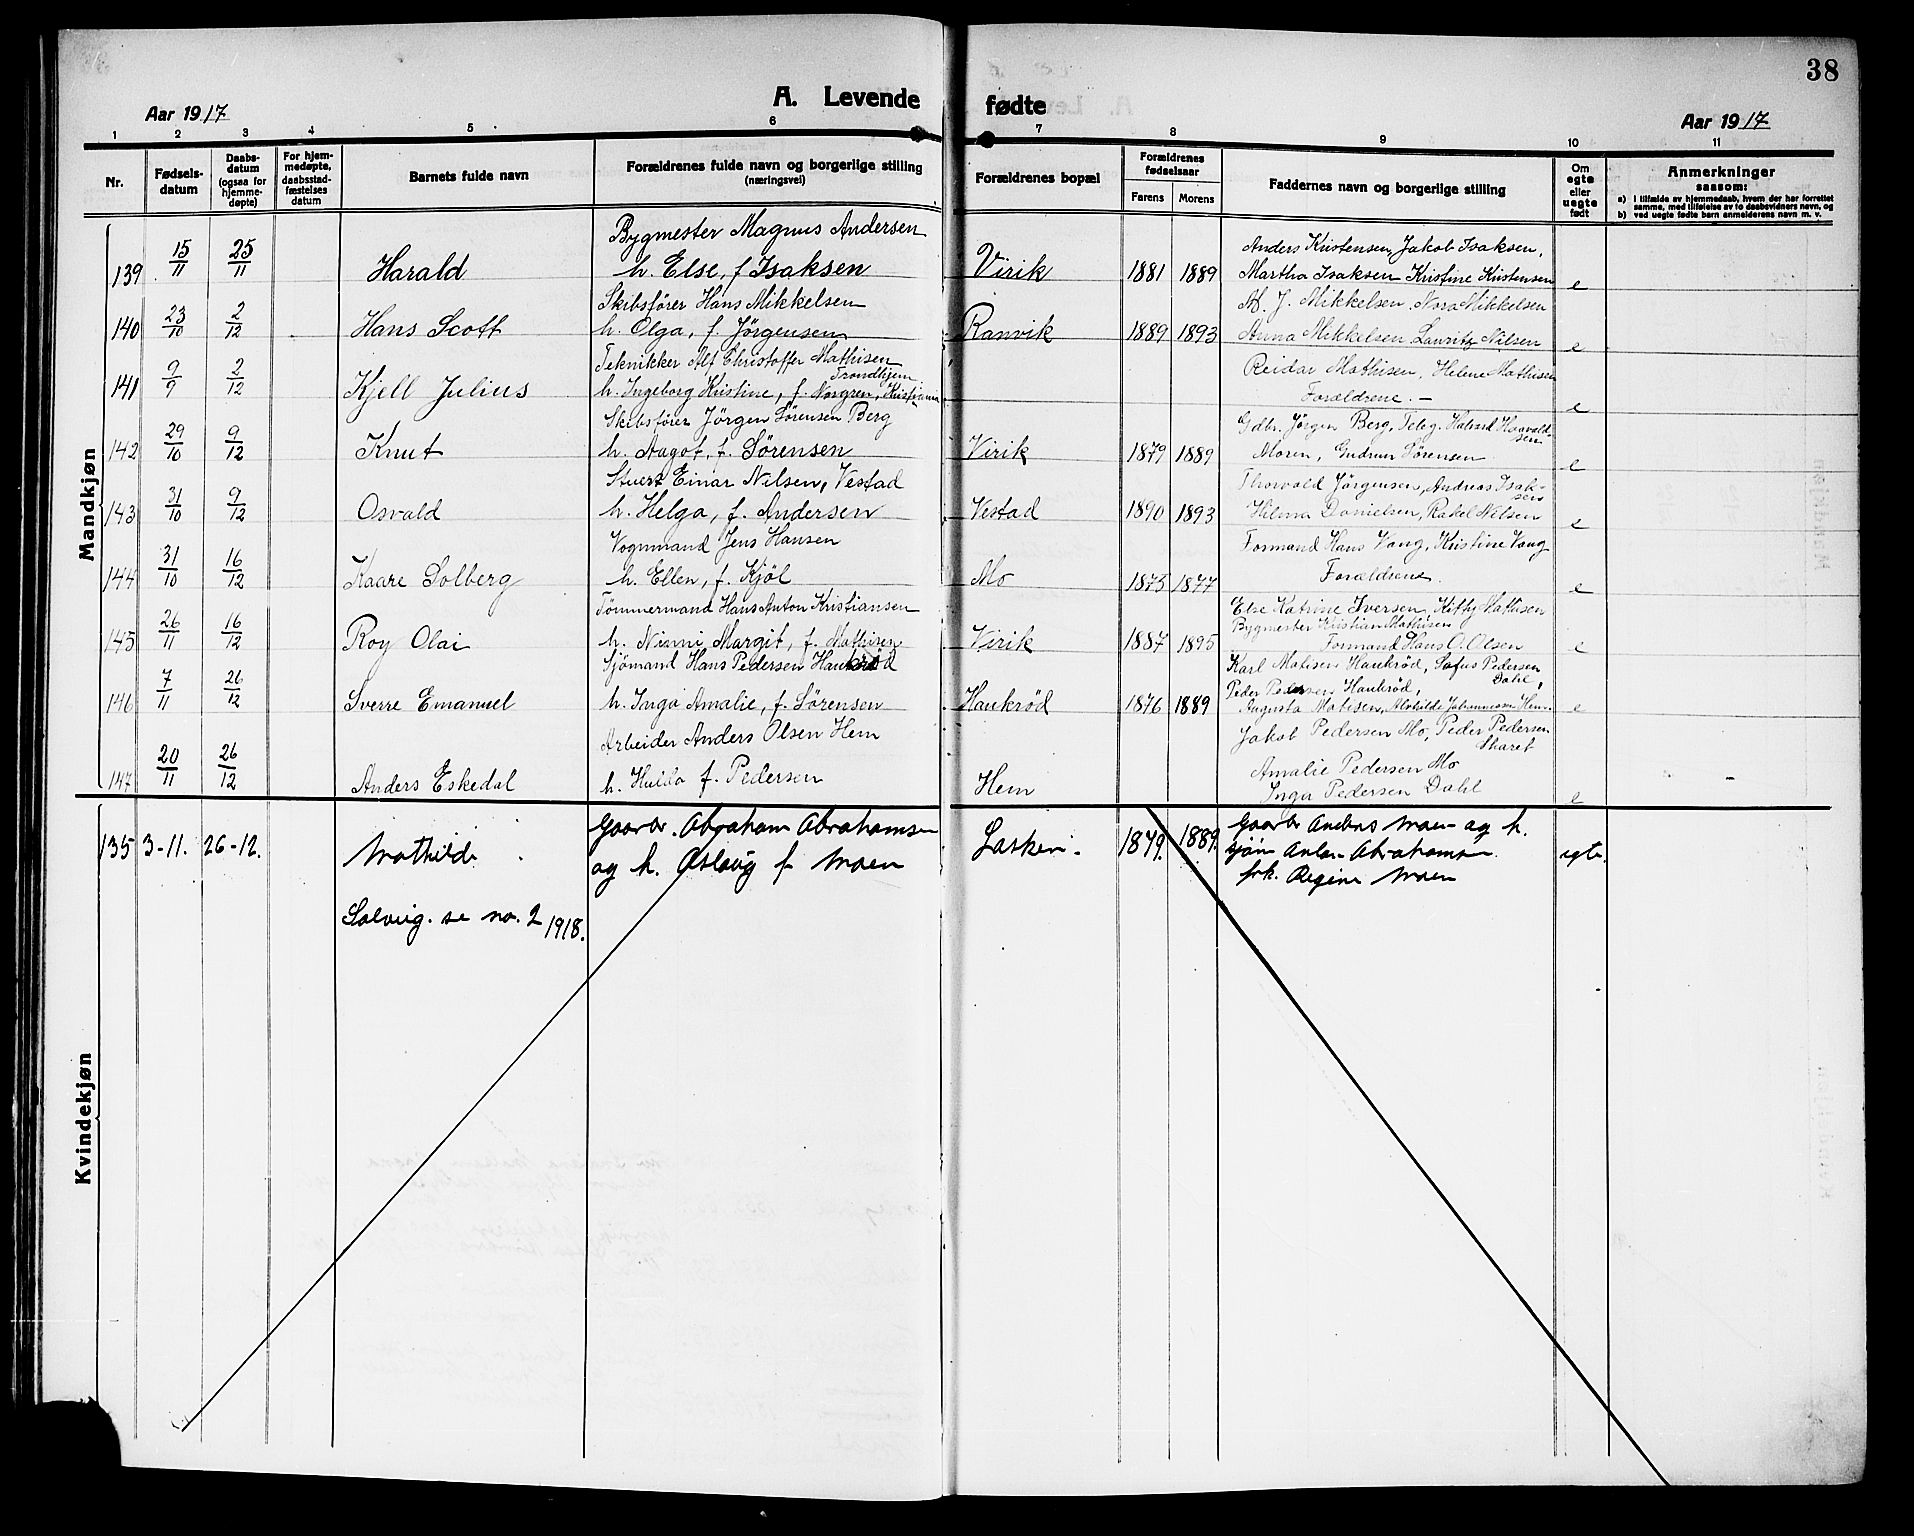 38
A. Levende fødte
Aar 1917
Aar 1917
1 2 3 4 5 6 7 8 9 10 11
Nr.
Fødsels-
datum
Daabs-
datum
(ogsaa for
hjemme-
døpte)
For hjem-
medøpte,
daabsstad-
fæstelses
datum
Barnets fulde navn
Forældrenes fulde navn og borgerlige stilling
(næringsvei)
Forældrenes bopæl
Forældrenes
fødselsaar
Farens
Morens
Faddernes navn og borgerlige stilling
Om
egte
eller
uegte
født
Anmerkninger
saasom:
a) i tilfælde av hjemmedaab, hvem der har forrettet
samme, med tilføielse av to daabsvidners navn, og
b) ved uegte fødte barn anmelderens navn m. v.
Mandkjøn
139 15/11 25/11 Harald
Bygmester Magnus Andersen
h. Else, f. Isaksen
Virik 1881 1889
Anders Kristensen, Jakob Isaksen,
Martha Isaksen Kristine Kristensen
e
140 23/10 2/12 Hans Scott
Skibsfører Hans Mikkelsen
h. Olga, f. Jörgensen
Ranvik 1889 1893
M. J. Mikkelsen. Nora Mikkelsen
Anna Mikkelsen Lauritz Nilsen
e
141 9/9 2/12 Kjell Julius
Teknikker Alf Christoffer Mathisen
Trondhjem
h. Ingeborg Kristine, f. Norgren, Kristiania
Reidar Mathisen, Helene Mathisen
Forældrene. –
e
142 29/10 9/12 Knut
Skibsfører Jörgen Sörensen Berg
h. Aagot, f. Sörensen
Virik 1879 1889
Gdbr. Jörgen Berg, Teleg. Halvard Haavald-
sen
Moren, Gudrun Sörensen
e
143 31/10 9/12 Osvald
Stuert Einar Nilsen, Vestad
h. Helga, f. Andersen
Vestad 1890 1893
Thorvald Jörgensen, Andreas Isak-
sen
Hilma Danielsen, Rakel Nilsen
e
144 31/10 16/12 Kaare Solberg
Vognmand Jens Hansen
h. Ellen, f. Kjöl
Mo 1875 1877
Formand Hans Vang, Kristine Vang
Forældrene.
e
145 26/11 16/12 Roy Olai
Tömmermand Hans Anton Kristiansen
h. Nimmi Margit, f. Mathisen
Virik 1887 1895
Else Katrine Iversen, Kitty Mathisen
Bygmester Kristian Mathisen
Formand Hans O. Olsen
e
146 7/11 26/12 Sverre Emanuel
Sjömand Hans Pedersen Haukröd
h. Inga Amalie, f. Sörensen
Haukröd 1876 1889
Karl Matisen Haukröd, Sofus Pedersen
Dahl,
Peder Pedersen Haukröd,
Augusta Matisen, Mathilde Johannesen Hem
e
147 20/11 26/12 Anders Eskedal
Arbeider Anders Olsen Hem
h. Hulda f. Pedersen
Hem
Jakob Pedersen Mo, Peder Pedersen
Skaret
Amalie Pedersen Mo
Inga Pedersen Dahl
e
Kvindekjøn
135 3-11. 26-12. Mathilde
Gaarbr. Abraham Abrahamsen
og h. Aslaug f. Moen
1879. 1889.
Gaarbr Anders Moen og h.
Anton Abrahamsen
frk. Regine Moen
egte.
Solveig. se no. 2 1918.